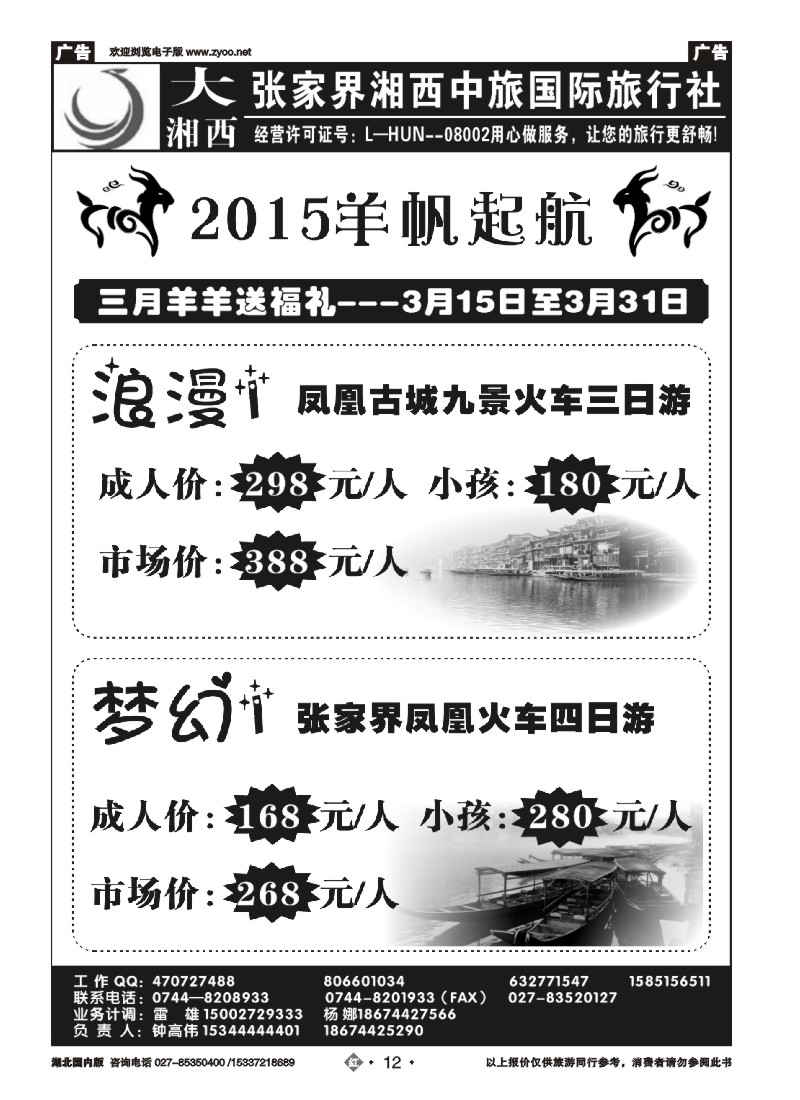 广告 欢迎浏览电子版 www.zyoo.net 广告
大湘西
张家界湘西中旅国际旅行社
经营许可证号：L—HUN--08002用心做服务，让您的旅行更舒畅!
2015羊帆起航
三月羊羊送福礼---3月15日至3月31日
浪漫 凤凰古城九景火车三日游
成人价：298元/人 小孩：180元/人
市场价：388元/人
梦幻 张家界凤凰火车四日游
成人价：168元/人 小孩：280元/人
市场价：268元/人
工作QQ：470727488 806601034 632771547 1585156511
联系电话：0744—8208933 0744-8201933（FAX） 027-83520127
业务计调：雷 雄 15002729333 杨 娜18674427566
负 责 人：钟高伟 15344444401 18674425290
湖北国内版 咨询电话 027-85350400 /15337218689 • 12 • 以上报价仅供旅游同行参考，消费者请勿参阅此书